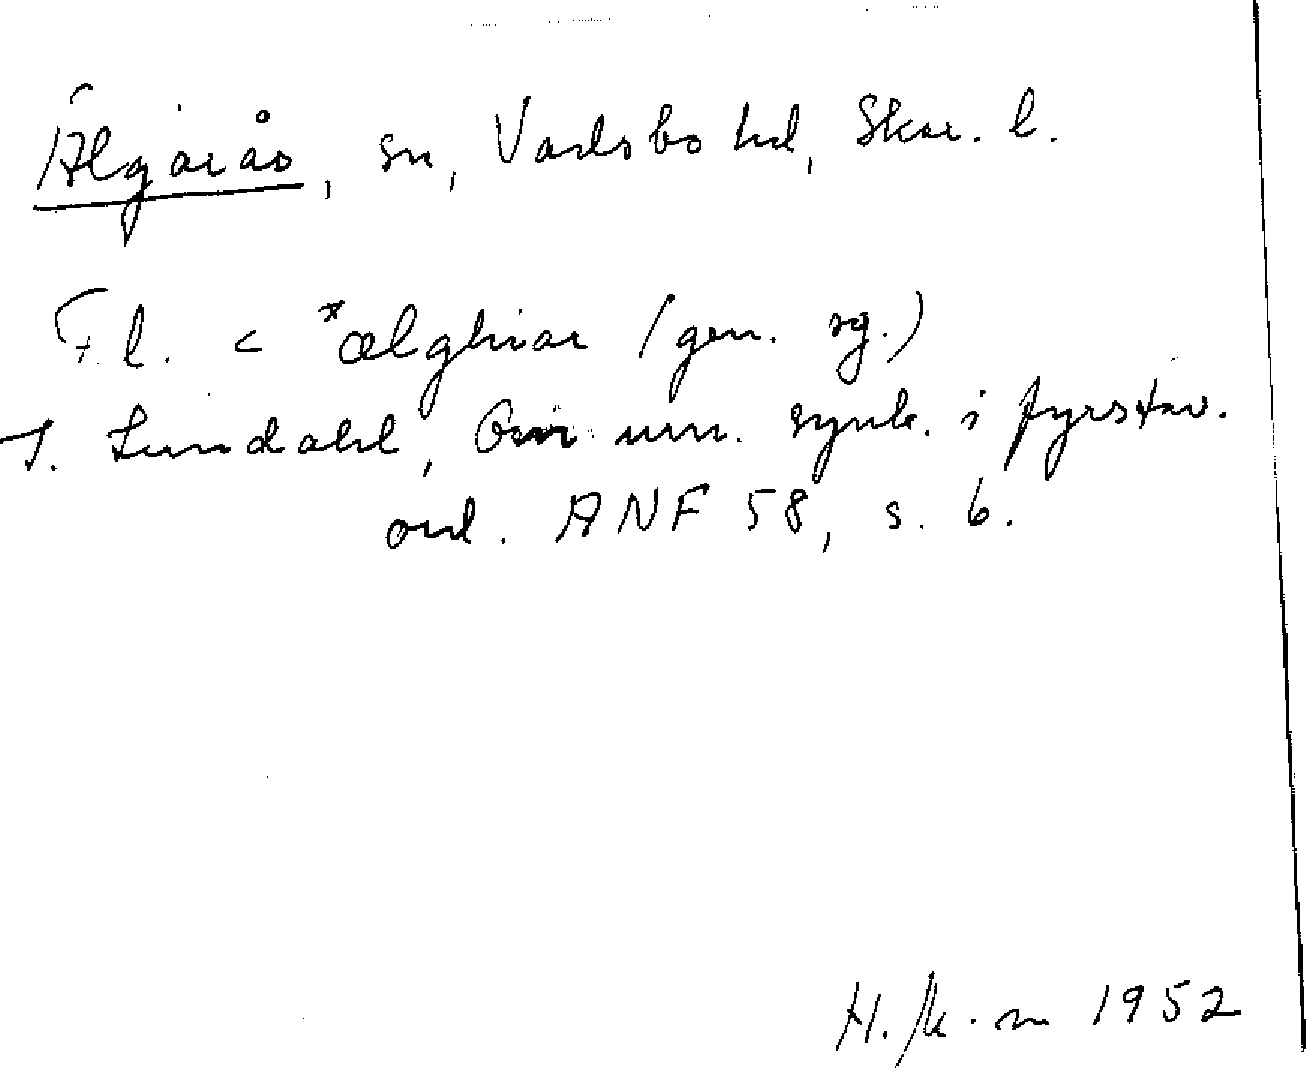 Älgarås, sn, Vadsbo hd, Skar. l.
F.l. < *ælghiar (gen. sg.)
I. Lundahl, Om vnn. synk. i fyrstav.
ord. ANF 58, s. 6.
H. 1952